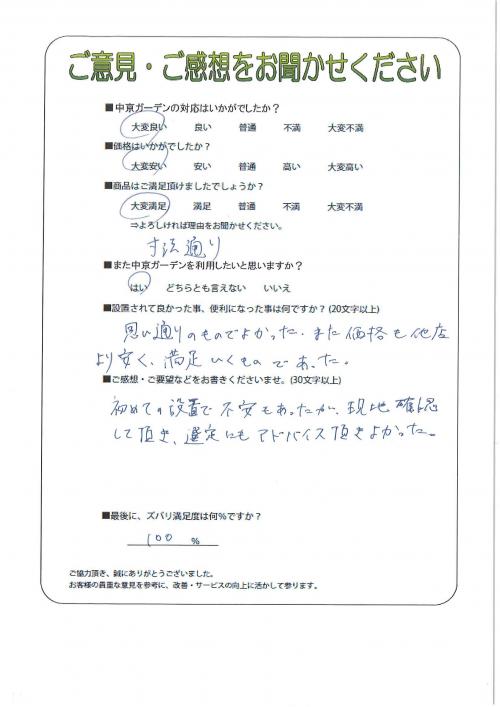 ご意見・ご感想をお聞かせください
■中京ガーデンの対応はいかがでしたか？
大変良い 良い 普通 不満 大変不満
■価格はいかがでしたか？
大変安い 安い 普通 高い 大変高い
■商品はご満足頂けましたでしょうか？
大変満足 満足 普通 不満 大変不満
⇒よろしければ理由をお聞かせください。
寸法通り
■また中京ガーデンを利用したいと思いますか？
はい どちらとも言えない いいえ
■設置されて良かった事、便利になった事は何ですか？(20文字以上)
思い通りのものでよかった。また価格も他店
より安く、満足いくものであった。
■ご感想・ご要望などをお書きくださいませ。(30文字以上)
初めての設置で不安もあったが、現地確認
して頂き、選定にもアドバイス頂きよかった。
■最後に、ズバリ満足度は何％ですか？
100 ％
ご協力頂き、誠にありがとうございました。
お客様の貴重な意見を参考に、改善・サービスの向上に活かして参ります。